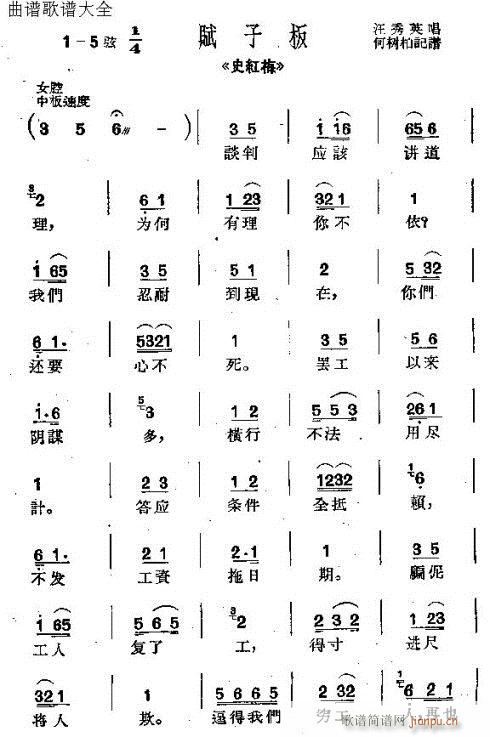 曲谱歌谱大全
1-5弦 1/4 賦子板 汪秀英唱
《史紅梅》 何树柏記譜
女腔
中板速度
(3 5 6 -) 3 5 i i6 65 6
談判 应該 讲道
2 6 1 1 23 321 1
理, 为何 有理 你不 依?
i 65 3 5 5 1 2 5 32
我們 忍耐 到現 在, 你們
6 1· 5321 1 3 5 5 6
还要 心不 死。 罢工 以来
i·6 5 3 1 2 5 5 3 261
阴謀 多, 橫行 不法 用尽
1 2 3 1 2 1232 1 6
計。 答应 条件 全抵 賴,
6 1· 2 1 2·1 1 3 5
不发 工資 拖日 期。 騙伲
i 65 5 6 5 2 2 32 1 23
工人 复了 工, 得寸 进尺
321 1 5 6 6 5 6 2 1
将人 欺。 逼得我們 穷工 人再也
歌谱简谱网 jianpu.cn